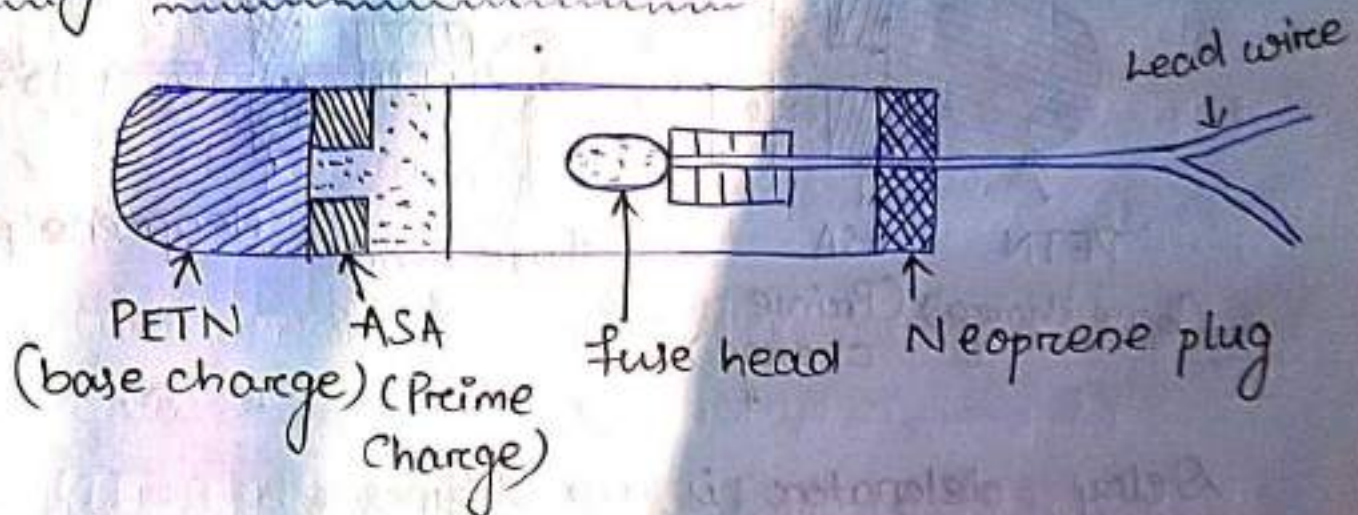 Lead wire
PETN
(base charge)
ASA
(Preime
Charge)
fuse head
Neoprene plug